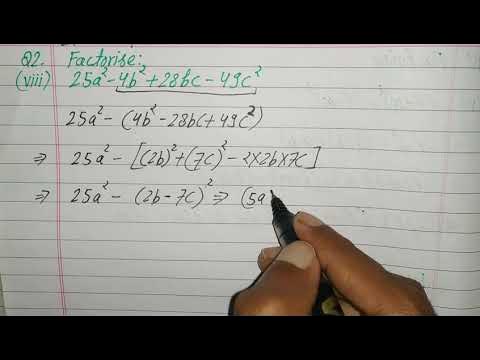 Q2. Factorise:
(viii) 25a² - 4b² + 28bc - 49c²
25a² - (4b² - 28bc + 49c²)
⇒ 25a² - [(2b)² + (7c)² - 2×2b×7c]
⇒ 25a² - (2b - 7c)² ⇒ (5a